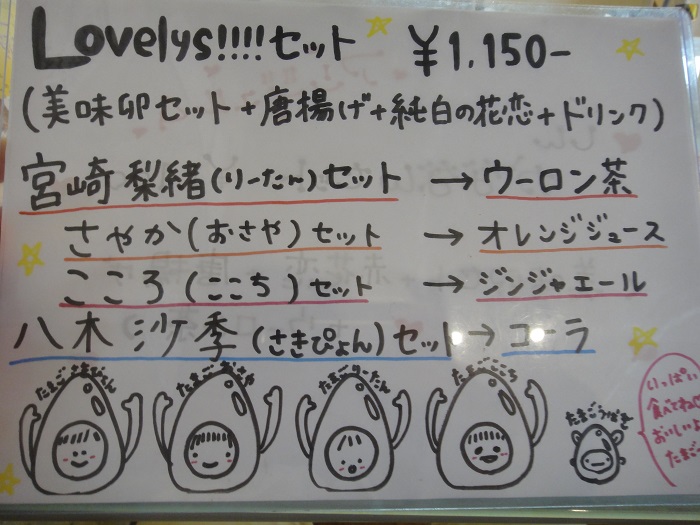 Lovelys!!!!セット ¥1,150-
(美味卵セット+唐揚げ+純白の花恋+ドリンク)
宮崎梨緒(りーたん)セット → ウーロン茶
さやか(おさや)セット → オレンジジュース
こころ(ここち)セット → ジンジャエール
八木沙季(さきぴょん)セット → コーラ
たまごさきぴょん たまごおさや たまごりーたん たまごこころ
いっぱい
食べてね
おいしいよ
たまご